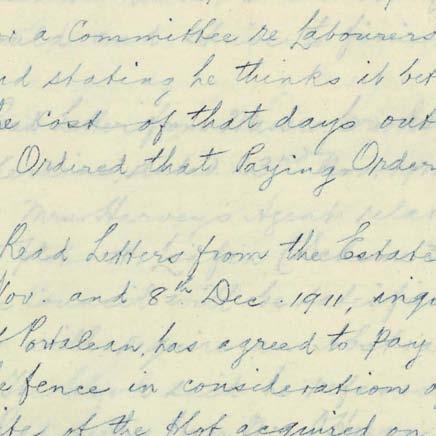 a Committee re Labourers
stating he thinks it bet
cost of that days out
Ordired that Paying Order
Read Letters from the Estate
Nov. and 8th Dec. 1911, inqu
Portalean, has agreed to Pay
fence in consideration o
of the Plot acquired on